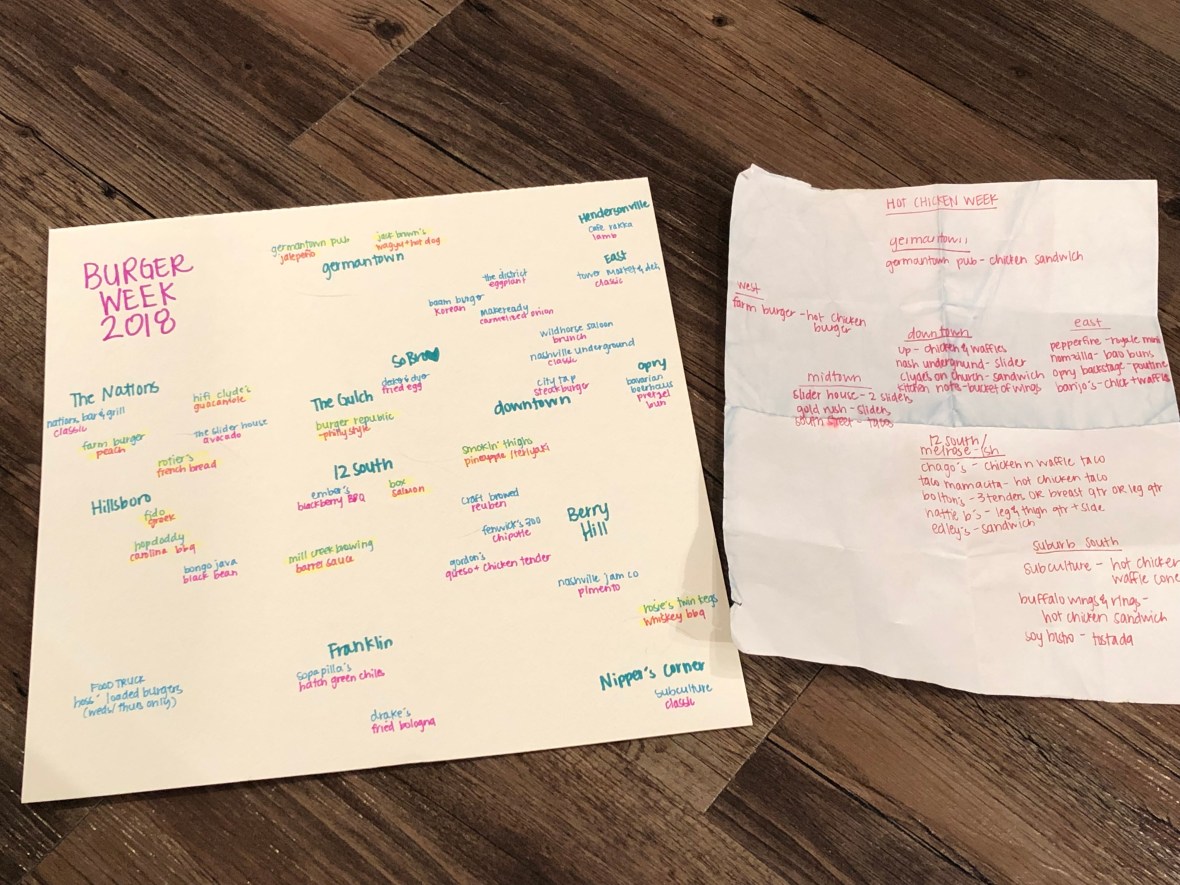 BURGER
WEEK
2018
germantown pub
jalepeño
jack brown's
wagyu + hot dog
germantown
Hendersonville
cafe rakka
lamb
East
tower market & deli
classic
the district
eggplant
baam burger
korean
makeready
carmelized onion
wildhorse saloon
brunch
nashville underground
classic
SoBro
deker & dyer
fried egg
city tap
steak burger
downtown
opry
bavarian
bierhaus
pretzel
bun
The Nations
nations bar & grill
classic
hifi clyde's
guacamole
farm burger
peach
The slider house
avocado
rotier's
french bread
The Gulch
burger republic
philly style
12 South
ember's
blackberry BBQ
box
salmon
smokin' thighs
pineapple / teriyaki
Hillsboro
fido
greek
hopdoddy
carolina bbq
bongo java
black bean
mill creek brewing
barrel sauce
craft brewed
reuben
fenwick's 300
chipotle
gordon's
queso + chicken tender
Berry
Hill
nashville jam co
pimento
rosie's twin kegs
whiskey bbq
Franklin
sopapilla's
hatch green chiles
drake's
fried bologna
FOOD TRUCK
hoss' loaded burgers
(weds/thurs only)
Nipper's Corner
subculture
classic
HOT CHICKEN WEEK
germantown
germantown pub - chicken sandwich
west
farm burger - hot chicken
burger
downtown
up - chicken & waffles
nash underground - slider
clydes on church - sandwich
kitchen notes - bucket of wings
east
pepperfire -
nomzilla - bao buns
opry backstage - poutine
banjo's - chick + waffles
midtown
slider house - 2 sliders
gold rush - sliders
south street - tacos
12 south/
melrose-ish
chago's - chicken n waffle taco
taco mamacita - hot chicken taco
bolton's - 3 tenders OR breast qtr OR leg qtr
hattie b's - leg & thigh qtr + side
edley's - sandwich
suburb south
subculture - hot chicken
waffle cone
buffalo wings & rings -
hot chicken sandwich
soy bistro - tostada